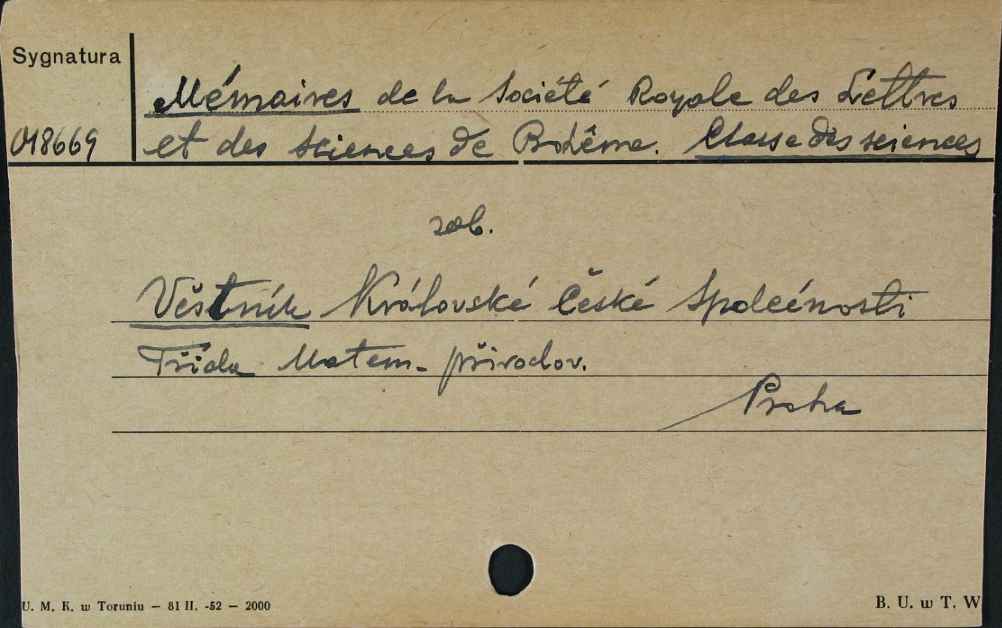 Sygnatura
Mémoires de la Société Royale des Lettres
018669 et des sciences de Bohême. Classe des sciences
zob.
Věstník Královské České Společnosti
Třída Matem-přírodov.
Praha
U. M. K. w Toruniu — 81 II. -52 — 2000 B. U. w T. W